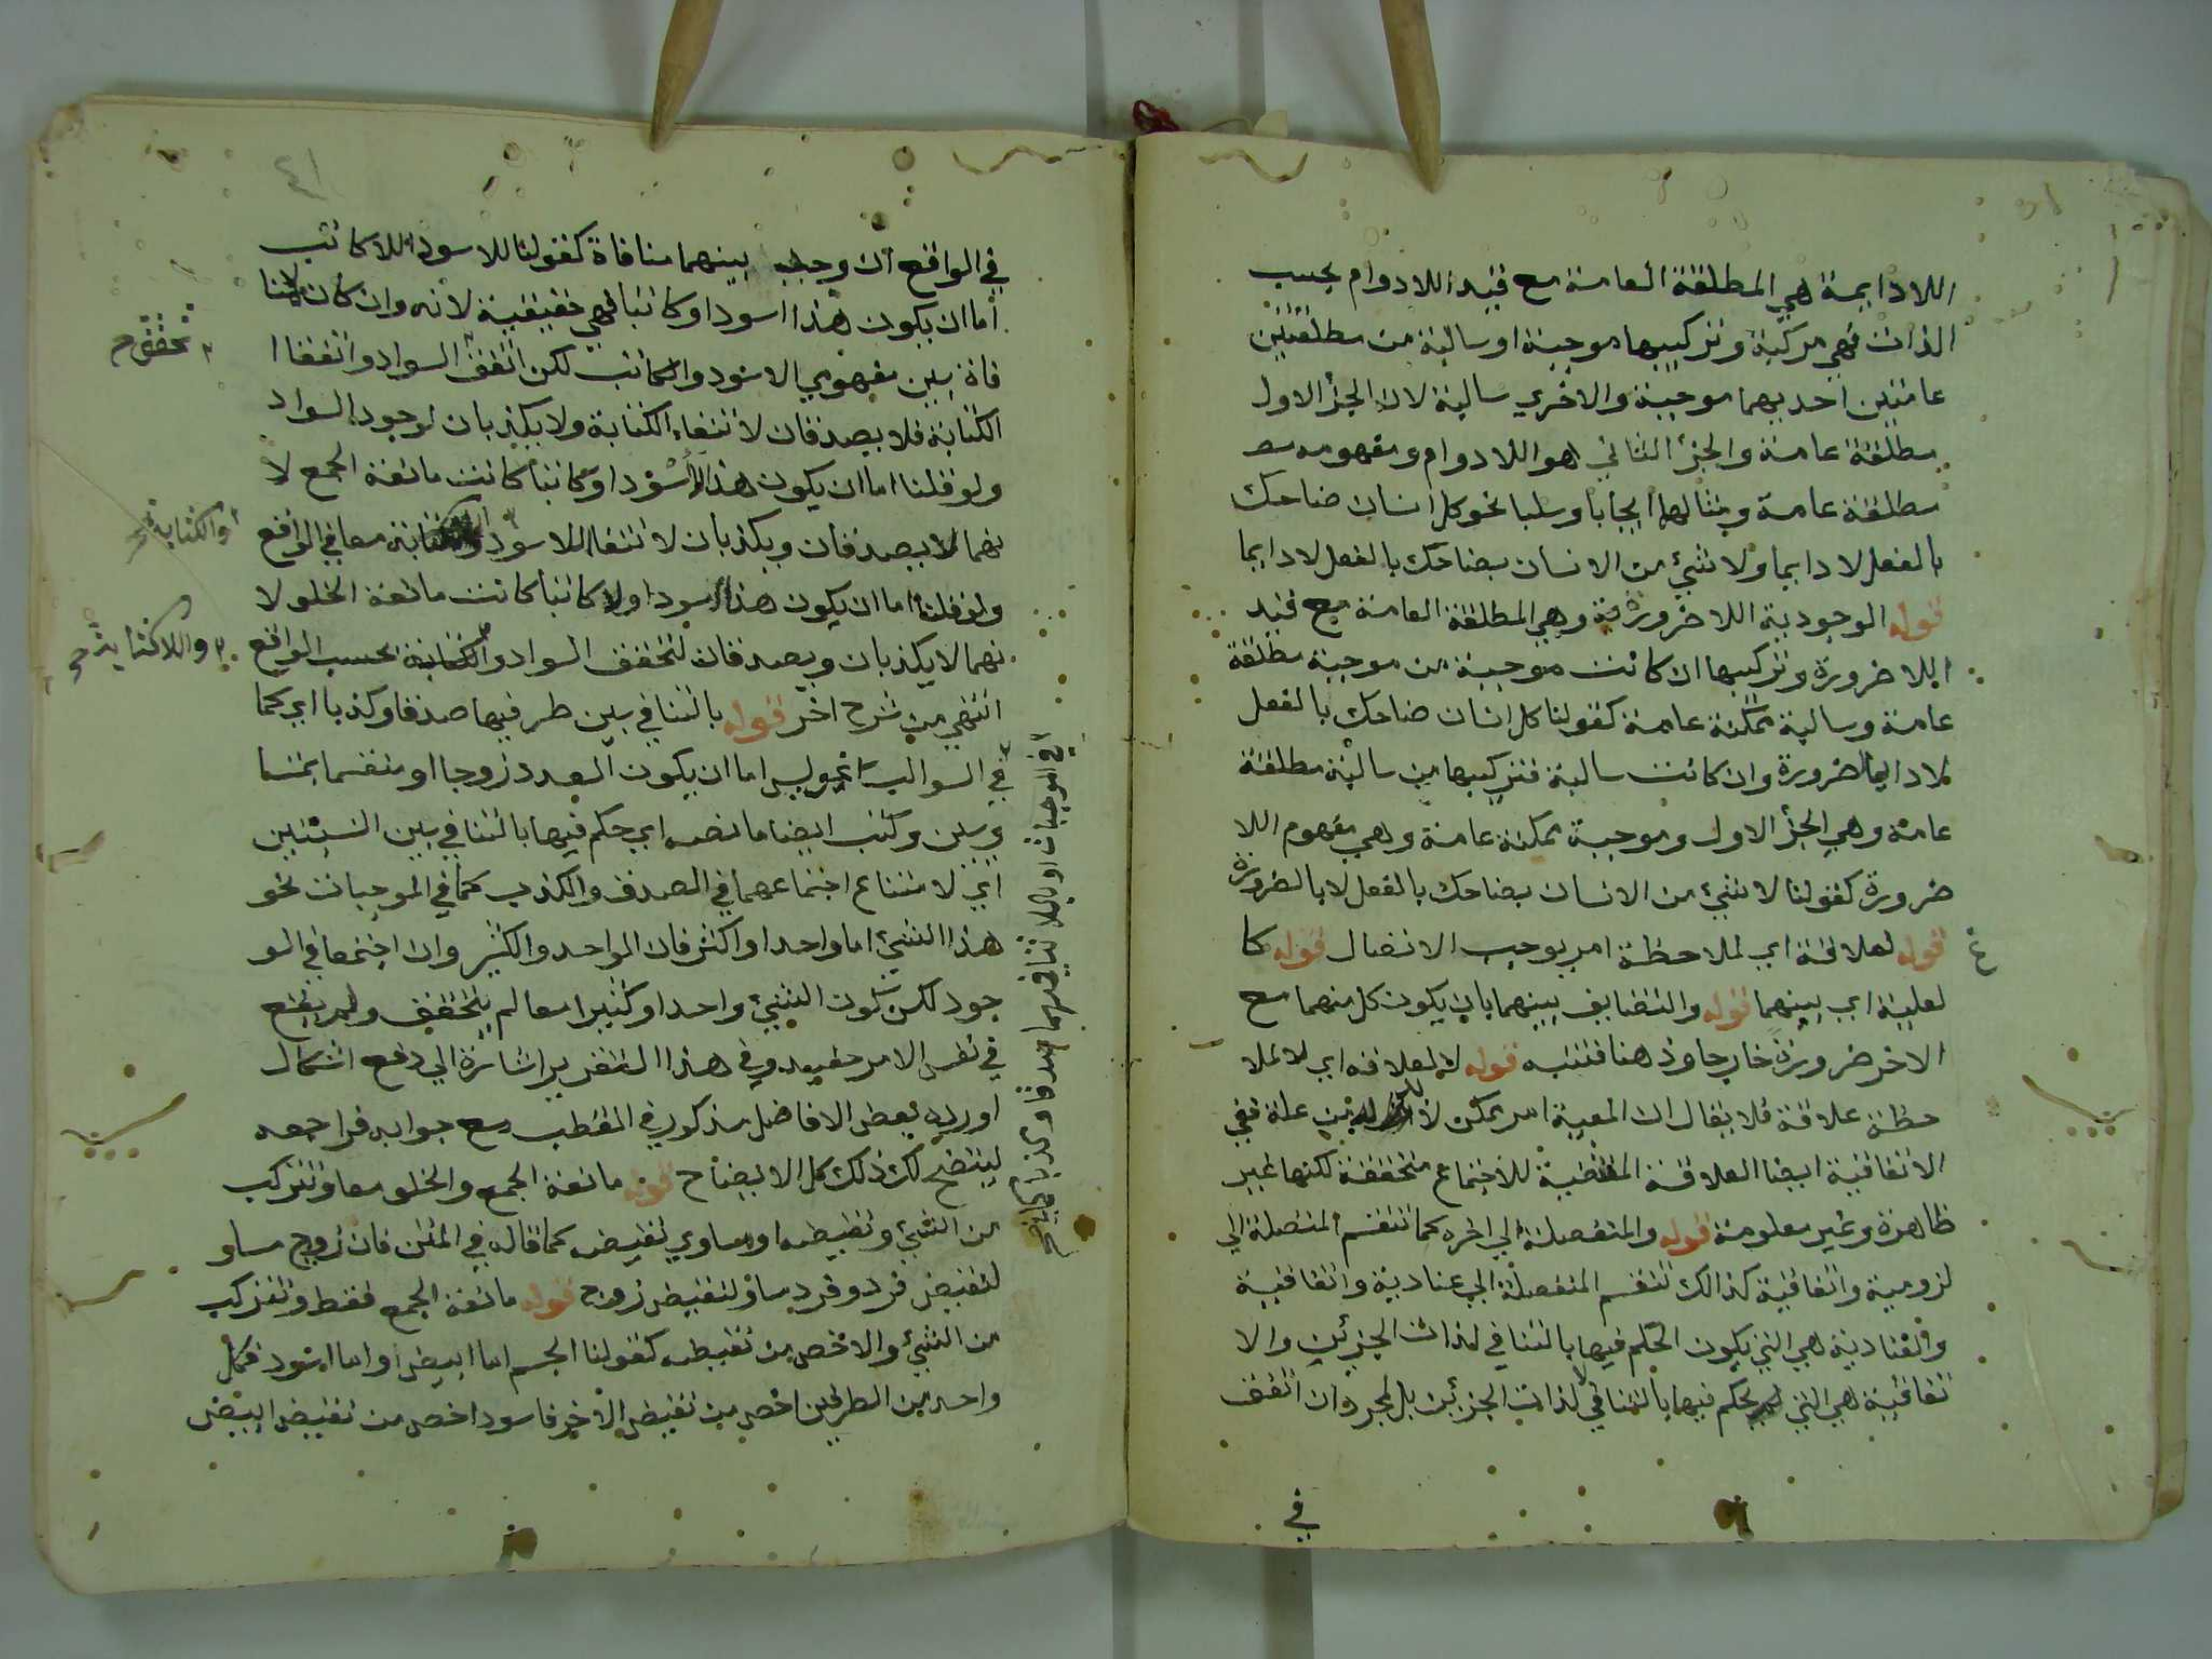 اللادايمة هي المطلقة العامة مع قيد اللادوام بحسب
الذات فهي مركبة وتركيبها موجبة او سالبة من مطلقتين
عامتين احديهما موجبة والاخري سالبة لان الجزأ الاول
مطلقة عامة والجزأ الثاني هو اللادوام ومفهومه
مطلقة عامة ومثالها ايجابا وسلبا نحو كل انسان ضاحك
بالفعل لا دايما ولا شيئ من الانسان بضاحك بالفعل لا دايما
قوله الوجودية اللاضرورية وهي المطلقة العامة مع قيد
اللاضرورة وتركيبها ان كانت موجبة من موجبة مطلقة
عامة وسالبة ممكنة عامة كقولنا كل انسان ضاحك بالفعل
لا دايما لا ضرورة وان كانت سالبة فتركيبها من سالبة مطلقة
عامة وهي الجزأ الاول وموجبة ممكنة عامة وهي مفهوم اللا
ضرورة كقولنا لا شيئ من الانسان بضاحك بالفعل لا بالضرورة
قوله لعلاقة اي لملاحظة امر يوجب الاتصال قوله كا
لعلية اي بينهما قوله والتضايف بينهما بان يكون كل منهما مع
الاخر ضرورة خارجا وذهنا فتنبه قوله لا لعلاقه اي لا لملا
حظة علاقة فلا يقال ان المعية امر ممكن لا من علة ففي
الاتفاقية ايضا العلاقة المقتضية للاجتماع متحققة لكنها غير
ظاهرة وغير معلومة قوله والمنفصلة الي اخره كما تنقسم المتصلة الي
لزومية واتفاقية كذالك تنقسم المنفصلة الي عنادية واتفاقية
والعنادية هي التي يكون الحكم فيها بالتنافي لذات الجزئين والا
تفاقية هي التي يحكم فيها بالتنافي لا لذات الجزئين بل لمجرد ان اتفق
في
٤١
في الواقع ان وجب بينهما منافاة كقولنا للاسود اللاكاتب
اما ان يكون هذا اسود او كاتبا فهي حقيقية لانه وان كان لا منا
فاة بين مفهومي الاسود والكاتب لكن اتفق السواد وانتفا ا
الكتابة فلا يصدقان لانتفاء الكتابة ولا يكذبان لوجود السواد
ولو قلنا اما ان يكون هذا لا اسود او كاتبا كانت مانعة الجمع لا
نهما لا يصدقان ويكذبان لانتفا اللاسود معا في الواقع
ولو قلنا اما ان يكون هذا اسود او لا كاتبا كانت مانعة الخلو لا
نهما لا يكذبان ويصدقان لتحقق السواد والكتابة بحسب الواقع
انتهي من شرح اخر قوله بالتنافي بين طرفيها صدقا وكذبا اي كما
في السوالب نحو ليس اما ان يكون العدد زوجا او منقسما بمتسا
ويين وكتب ايضا ما نصه اي حكم فيها بالتنافي بين النسبتين
اي لامتناع اجتماعهما في الصدق والكذب كما في الموجبات نحو
هذا الشيئ اما واحدا واكثر فان الواحد والكثير وان اجتمعا في الو
جود لكن تكون الشيئ واحدا وكثيرا معا لم يتحقق ولم يقع
في نفس الامر وفي هذا التقرير اشارة الي دفع اشكال
اورده بعض الافاضل مذكور في القطب مع جوابه فراجعه
ليتضح لك ذلك كل الايضاح قوله مانعة الجمع والخلو معا وتتركب
من الشيئ ونقيضه او مساوي نقيضه كما قاله في المتن فان زوج مساو
لنقيض فرد وفرد مساو لنقيض زوج قوله مانعة الجمع فقط وتتركب
من الشيئ والاخص من نقيضه كقولنا الجسم اما ابيض او اما اسود فكل
واحد من الطرفين اخص من نقيض الاخر فاسود اخص من نقيض ابيض
تحقق م
او الكتابة
واللاكتابة
في الموجبات او باللا تنافيهما صدقا وكذبا كما في